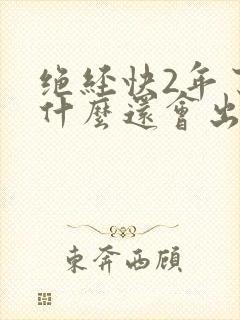 绝经快2年了
什麼還會出
東奔西顾